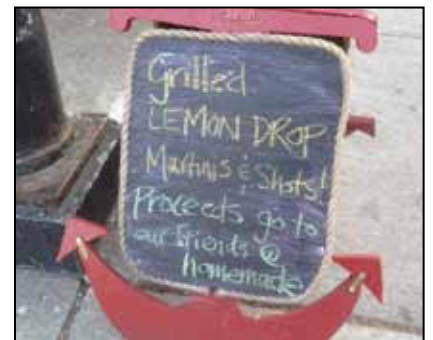 Grilled
LEMON DROP
Martinis & Shots!
Proceeds go to
our friends @
homemade